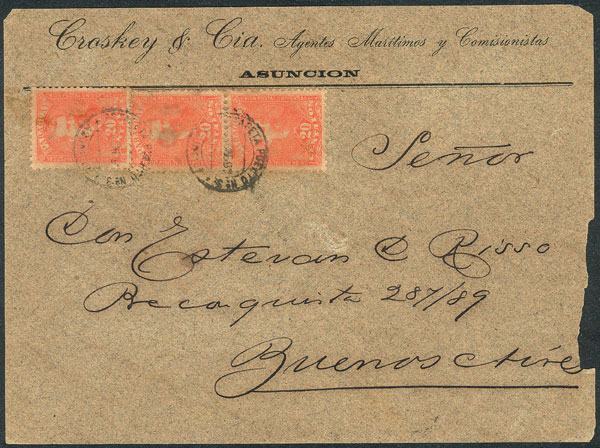 Croskey & Cia. Agentes Marítimos y Comisionistas
ASUNCION
Señor
Don Estevan D Risso
Reconquista 287/89
Buenos Aire